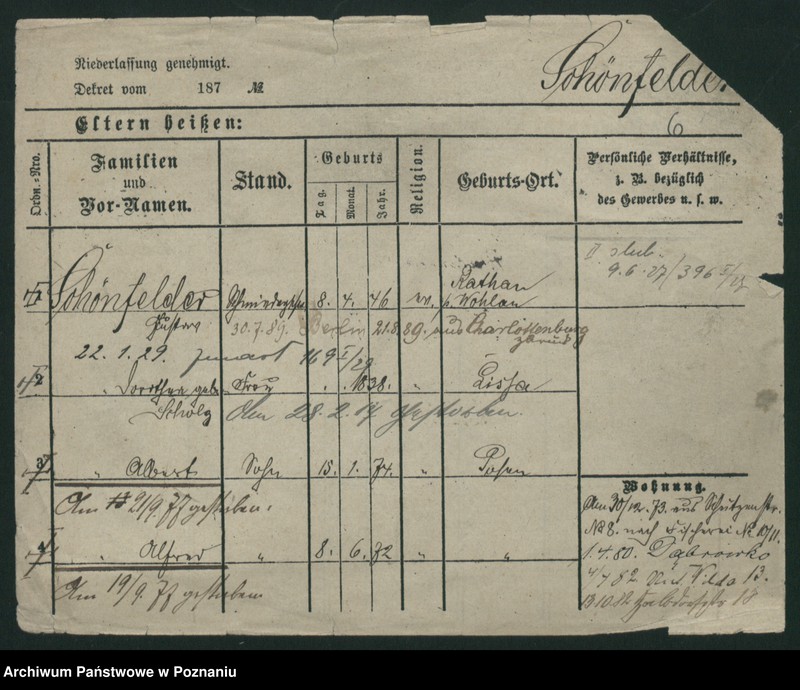 Niederlassung genehmigt.
Dekret vom 187 №
Schönfelder
6
Eltern heißen:
Ordn.-Nro.
Familien und Vor-Namen.
Stand.
Geburts
Tag.
Monat.
Jahr.
Religion.
Geburts-Ort.
Persönliche Verhältnisse, z. B. bezüglich des Gewerbes u. s. w.
9.6.27/396
Schönfelder 8. 4. 46 ev. Rathan
b. Wohlau
Gustav 30.7.89. Berlin 21.8.89. aus Charlottenburg
zurück
22.1.29.
2 " Dorothea geb. Frau " " 1838. " Lissa
Scholz Am 28.2.14 gestorben.
3 " Albert Sohn 15. 1. 74. " Posen
Am 21/9.77 gestorben.
Wohnung.
Am 30/12.73. aus Schützenstr.
№ 8. nach Fischerei № 10/11.
4 " Alfred " 8. 6. 72 " "
1.4.80. Dąbrowko
4/7 82 Wilda 13.
Am 19/9.77 gestorben
Archiwum Państwowe w Poznaniu